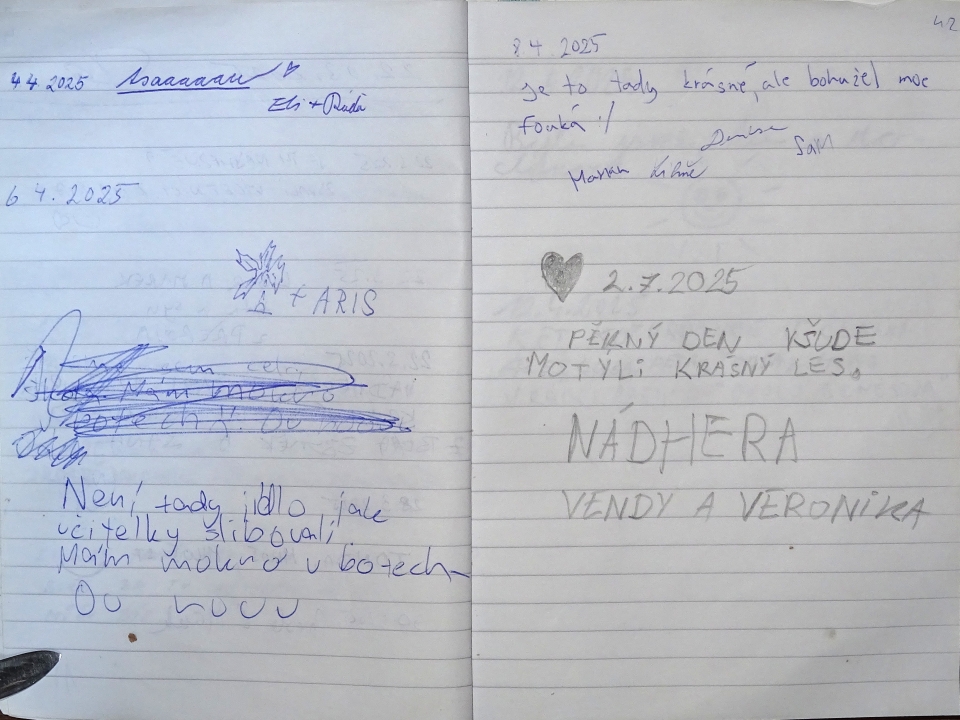 4.4 2025
Eli + Ráďa
6 4. 2025
+ ARIS
Mám mokro
botech
Není tady jídlo jak
učitelky slibovali
Mám mokro v botech
Ou nouu
42
8.4 2025
Je to tady krásné, ale bohužel moc
fouká :/
Denisa
Sam
Marian
2.7.2025
PĚKNÝ DEN KŠUDE
MOTÝLI KRÁSNÝ LES.
NÁDHERA
VENDY A VERONIKA